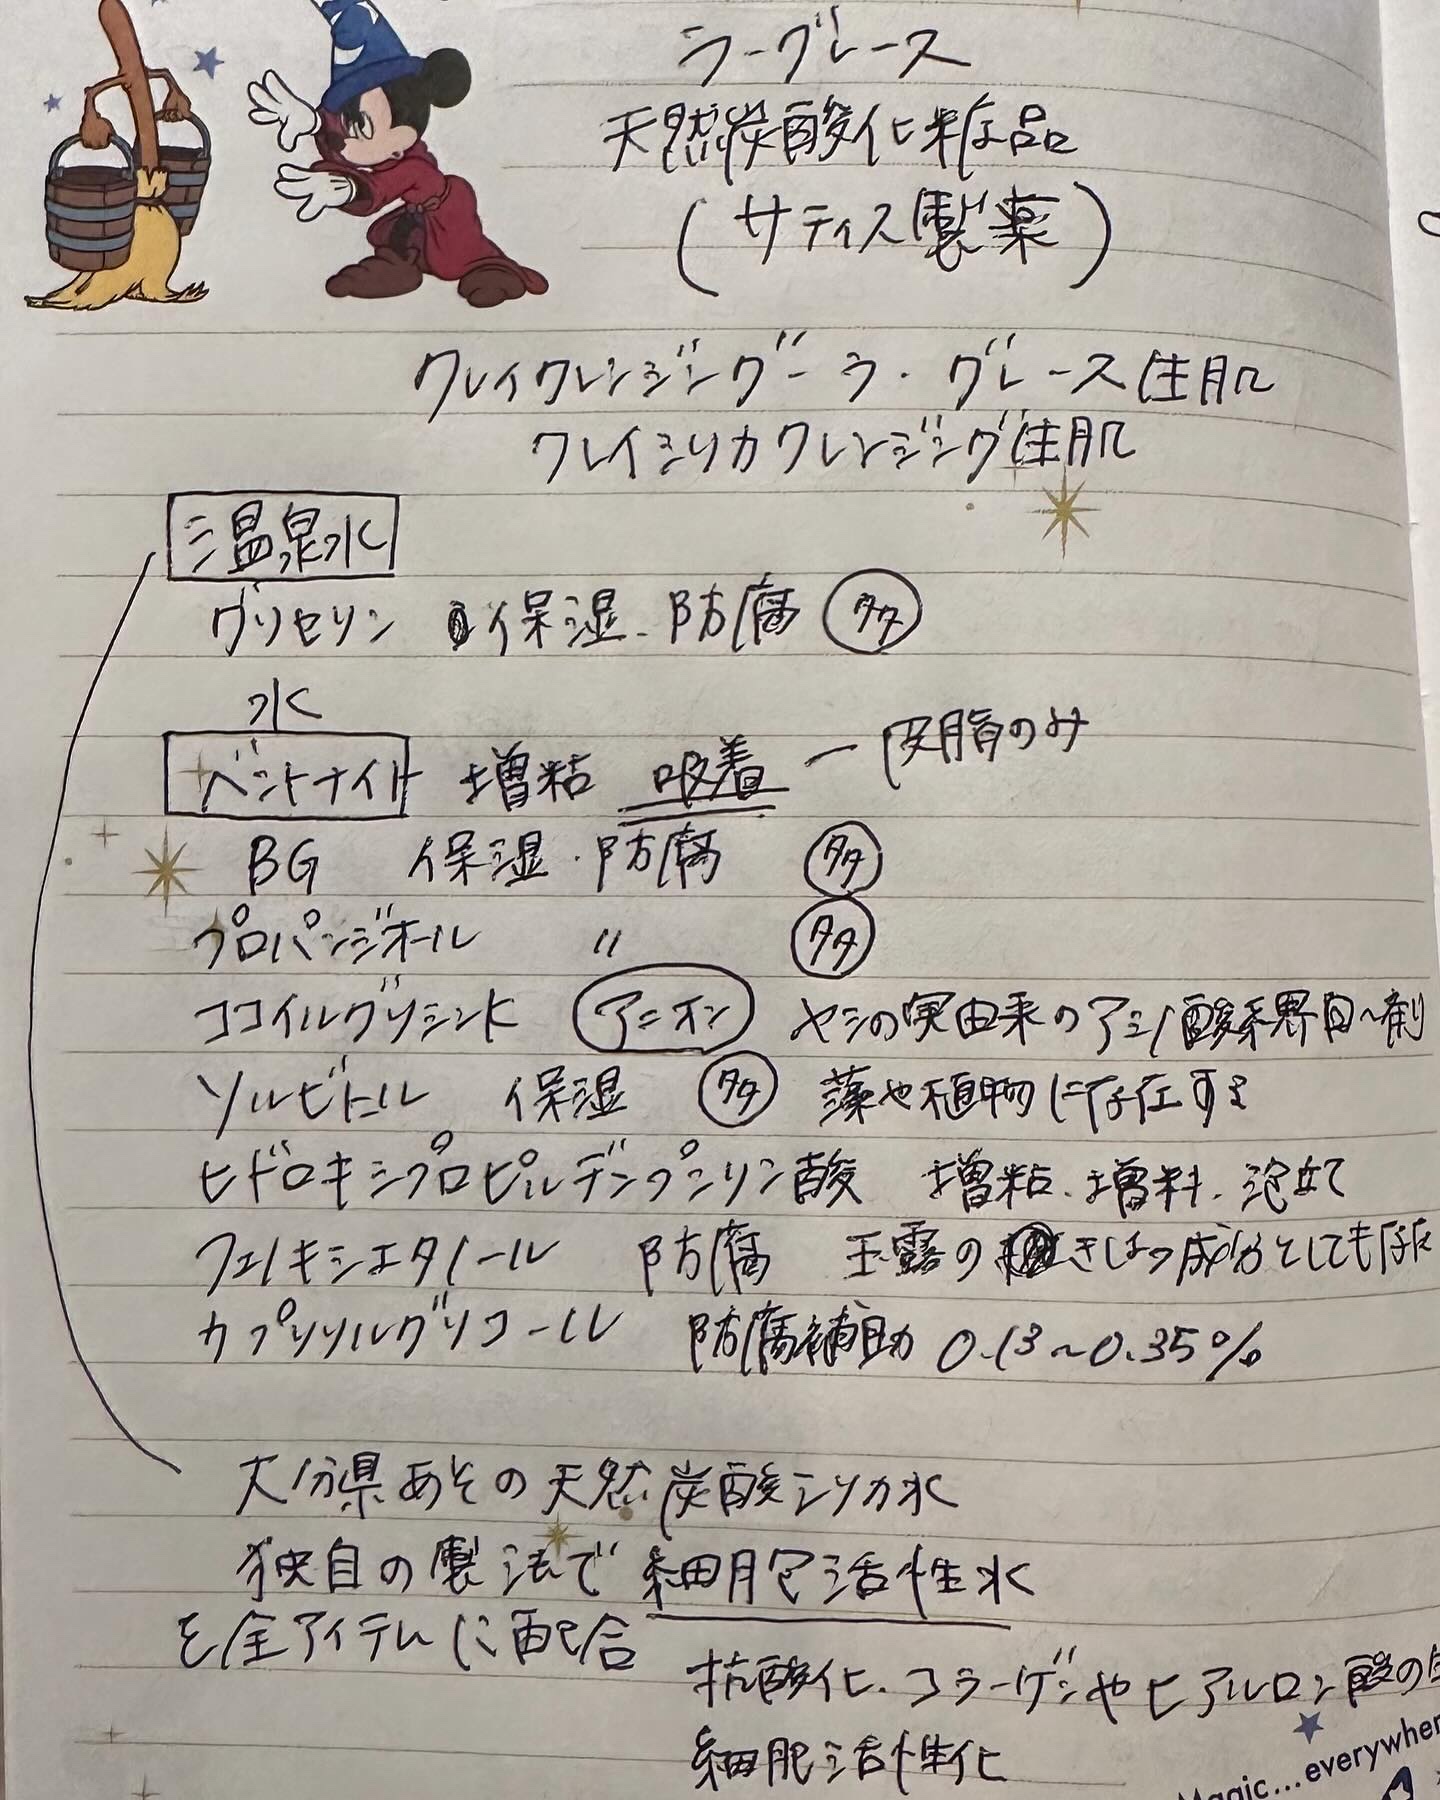 ラーグレース
天然炭酸化粧品
(サティス製薬)
クレイクレンジングーラ・グレース生肌
クレイシリカクレンジング生肌
温泉水
グリセリン 保湿.防腐 多
水
ベントナイト 増粘 吸着 ー皮脂のみ
BG 保湿・防腐 多
プロパンジオール 〃 多
ココイルグリシンK アニオン ヤシの実由来のアミノ酸系界面〜剤
ソルビトール 保湿 多 藻や植物に存在する
ヒドロキシプロピルデンプンリン酸 増粘.増料.泡立て
フェノキシエタノール 防腐 玉露の きはつ成分としても存在
カプリリルグリコール 防腐補助 0.13〜0.35%
大分県あその天然炭酸シリカ水
独自の製法で細胞活性水
を全アイテムに配合
抗酸化.コラーゲンやヒアルロン酸の
細胞活性化
Magic...everywhere